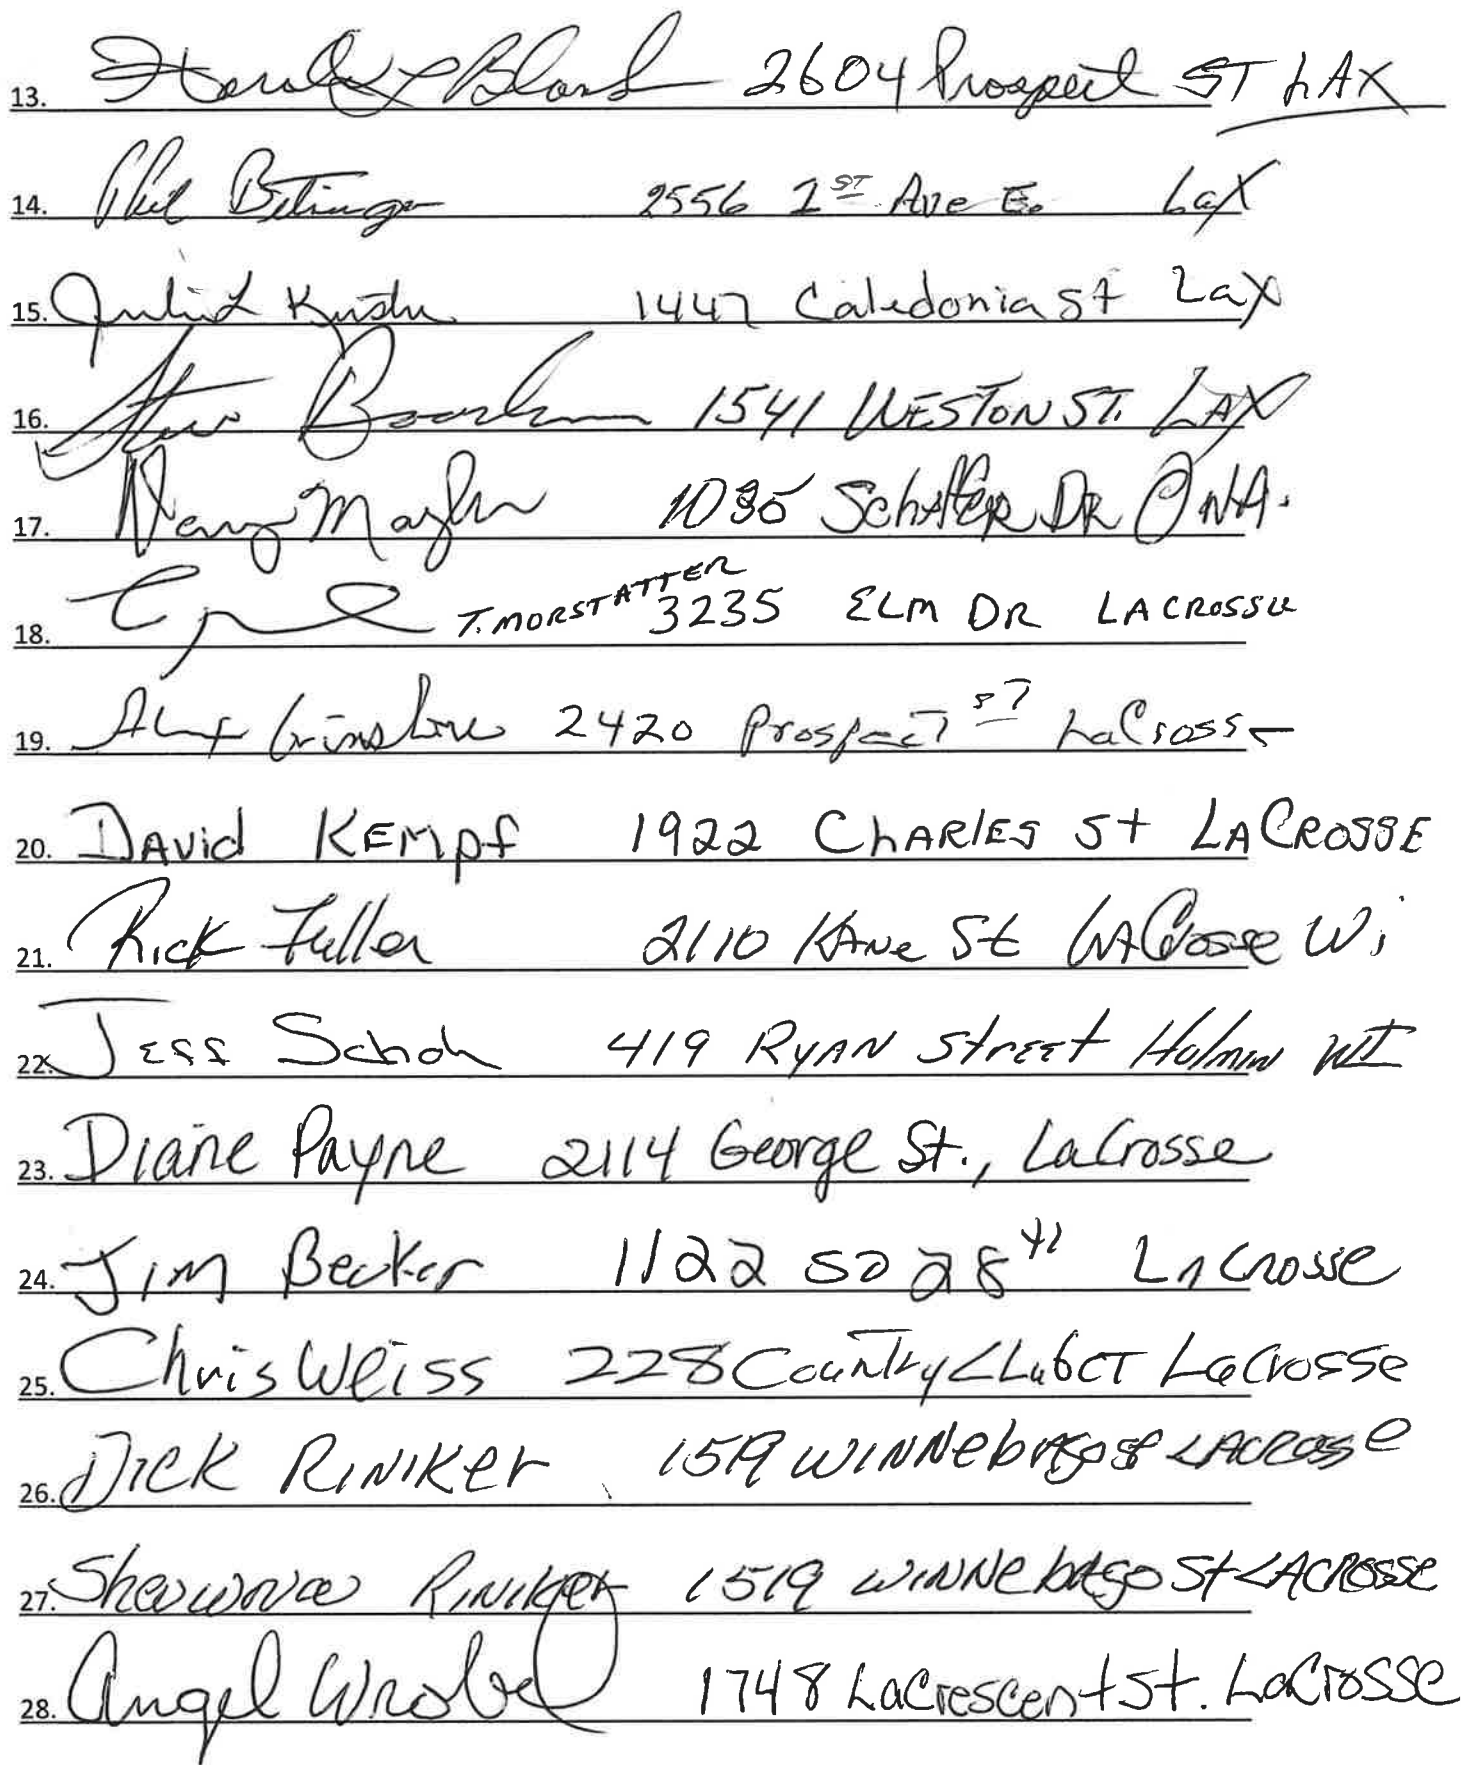 13. Harold Bland 2604 Prospect ST LAX
14. Phil 2556 1ST Ave E. LaX
15. Julie L 1447 Caledonia St LaX
16. Steve 1541 WESTON ST. LAX
17. 1035 Schafer DR ONA.
18. T. MORSTATTER 3235 ELM DR LACROSSE
19. 2420 Prospect ST LaCrosse
20. DAvid KEMpf 1922 ChARlES St LACROSSE
21. Rick Fuller 2110 KANe St LACrosse Wi
22. JESS 419 RYAN StrEEt Holmen WI
23. Diane Payne 2114 George St., LaCrosse
24. Jim Becker 1122 SO 28th LACrosse
25. Chris Weiss 228 Country CLub CT LaCrosse
26. Dick RINIKer 1519 WINNebAgo St LACROSSe
27. RINIKer 1519 WINNebAgo St LACROSSE
28. Angel Wrobel 1748 LaCrescent St. LaCrosse